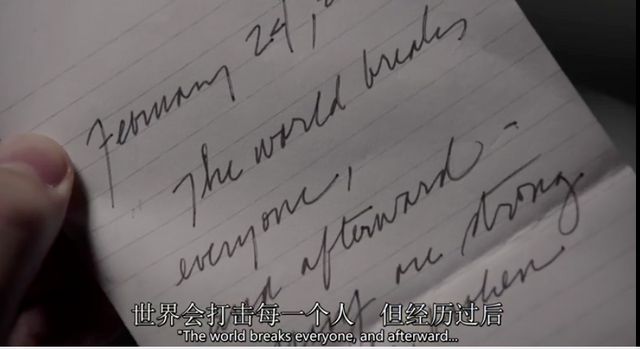 February 24,
The world breaks
everyone,
afterward -
are strong
世界会打击每一个人 但经历过后
"The world breaks everyone, and afterward...